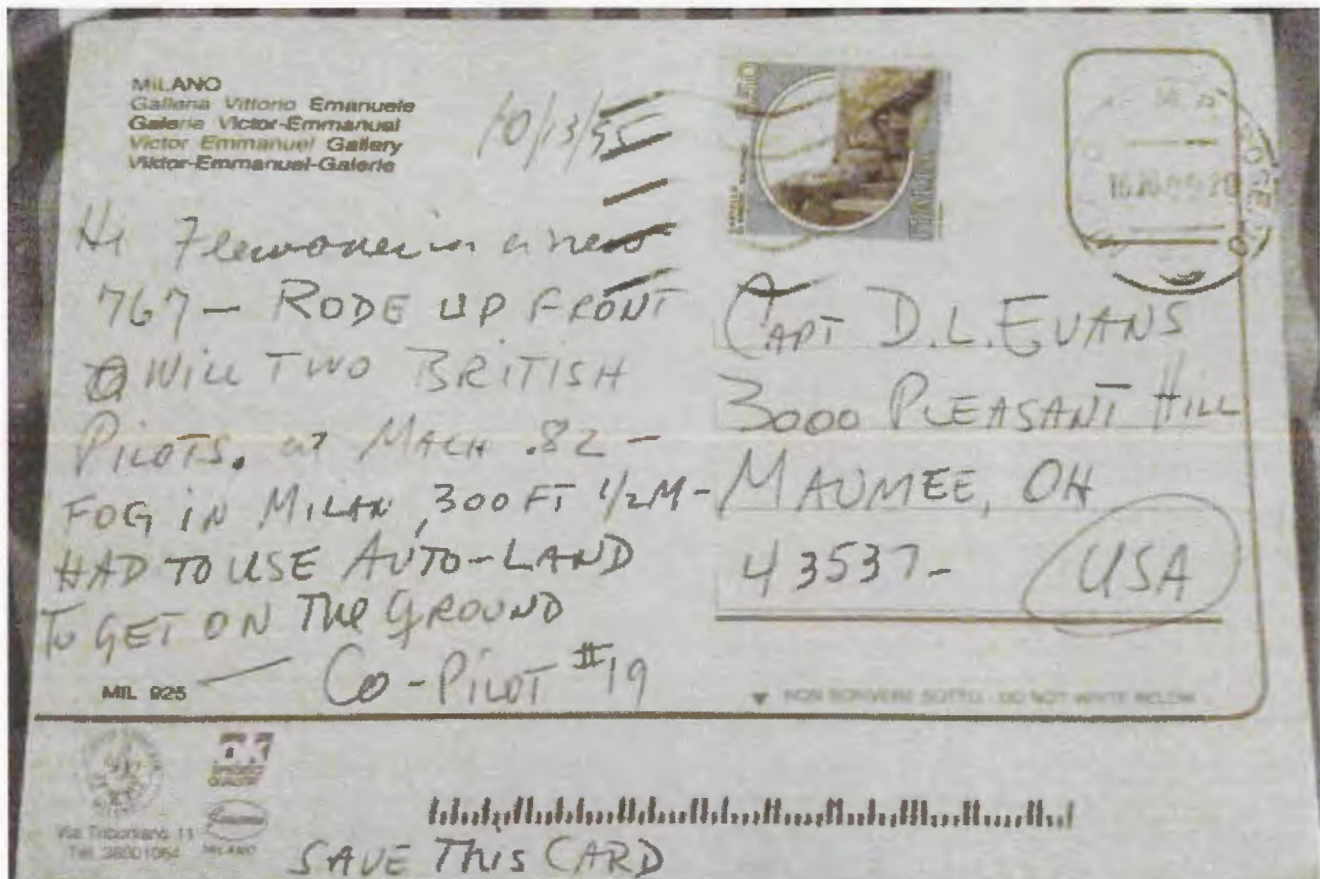 MILANO
Galleria Vittorio Emanuele
Galerie Victor-Emmanuel
Victor Emmanuel Gallery
Viktor-Emmanuel-Galerie
10/13/95
Hi Flew over in a new
767 - RODE UP FRONT
WITH TWO BRITISH
PILOTS. at MACH .82 -
FOG IN MILAN, 300 FT 1/2M -
HAD TO USE AUTO-LAND
To GET ON THE GROUND
CO-PILOT #19
MIL 925
CAPT D.L. EVANS
3000 PLEASANT HILL
MAUMEE, OH
43537-
USA
NON SCRIVERE SOTTO - DO NOT WRITE BELOW
Via Triboniano 11
Tel. 38001064
MILANO
SAVE THIS CARD